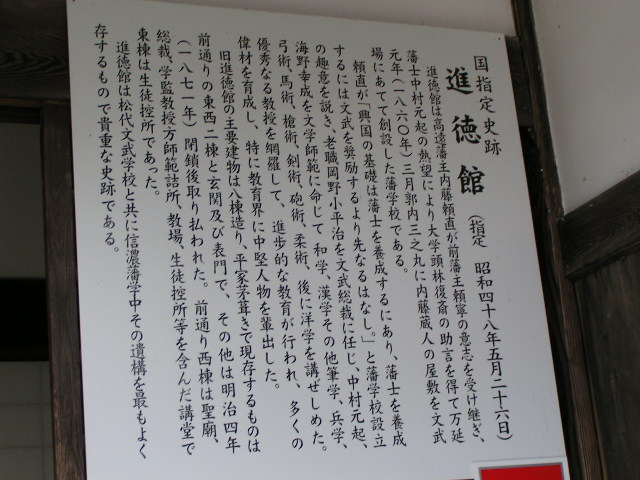 国指定史跡
進徳館
(指定 昭和四十八年五月二十六日)
進徳館は高遠藩主内藤頼直が前藩主頼寧の意志を受け継ぎ、
藩士中村元起の熱望により大学頭林復斎の助言を得て万延
元年(一八六〇年)三月郭内三之丸に内藤蔵人の屋敷を文武
場にあてて創設した藩学校である。
頼直が「興国の基礎は藩士を養成するにあり、藩士を養成
するには文武を奨励するより先なるはなし。」と藩学校設立
の趣意を説き、老職岡野小平治を文武総裁に任じ、中村元起、
海野幸成を文学師範に命じて和学、漢学その他筆学、兵学、
弓術、馬術、槍術、剣術、砲術、柔術、後に洋学を講ぜしめた。
優秀なる教授を網羅して、進歩的な教育が行われ、多くの
偉材を育成し、特に教育界に中堅人物を輩出した。
旧進徳館の主要建物は八棟造り、平家茅葺きで現存するものは
前通りの東西二棟と玄関及び表門で、その他は明治四年
(一八七一年)閉鎖後取り払われた。前通り西棟は聖廟、
総裁、学監教授方師範詰所、教場、生徒控所等を含んだ講堂で
東棟は生徒控所であった。
進徳館は松代文武学校と共に信濃藩学中その遺構を最もよく
存するもので貴重な史跡である。